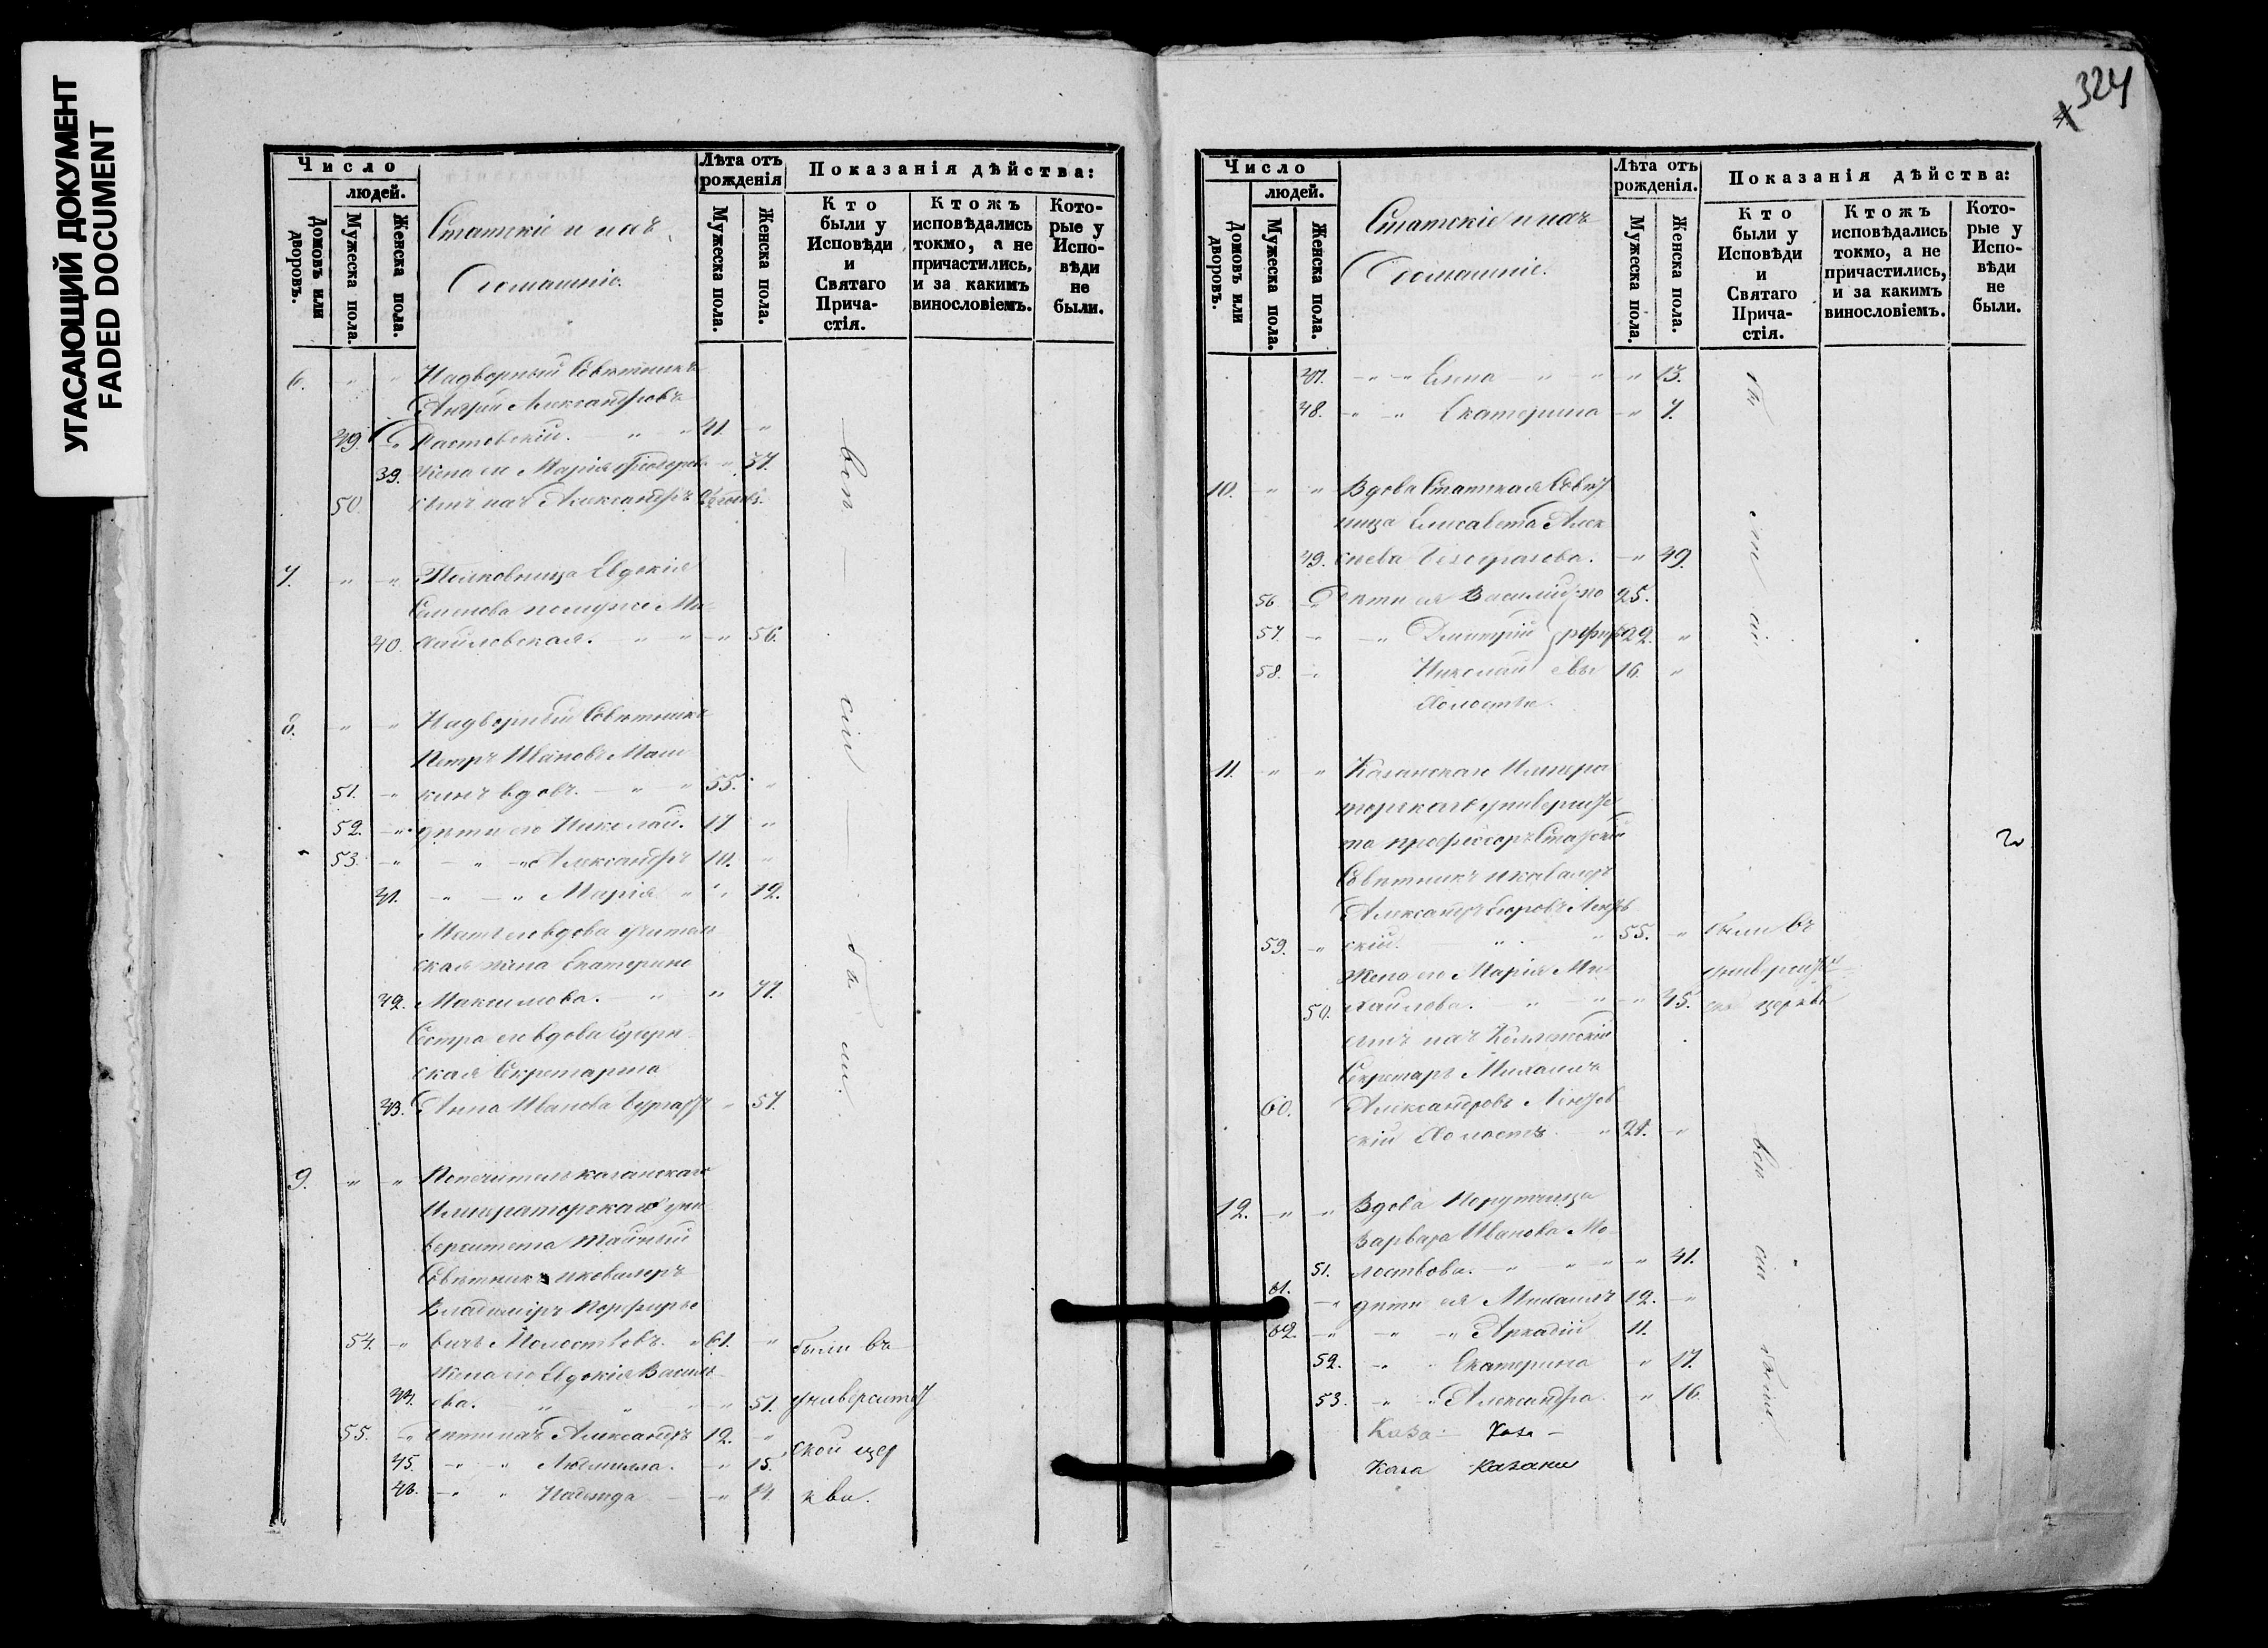 УГАСАЮЩИЙ ДОКУМЕНТ
FADED DOCUMENT
Число
людей.
Домовъ или дворовъ.
Мужеска пола.
Женска пола.
Статскіе и ихъ
Домашніе.
Лѣта отъ рожденія
Мужеска пола.
Женска пола.
Показанія дѣйства:
Кто были у Исповѣди и Святаго Прича-стія.
Ктожъ исповѣдались токмо, а не причастились, и за какимъ винословіемъ.
Кото-рые у Испо-вѣди не были.
6. " " Надворный Совѣтникъ
Андрей Александровъ
49. "
41. "
39. Жена его Марія Ѳеодорова " 37.
50. сынъ ихъ Александръ
всѣ
7. " " Полковница Евдокія
Семенова по мужѣ Ми-
40. хайловская. " " " 56.
8. " " Надворный Совѣтникъ
сіи
Петръ Ивановъ
51. " кинъ вдовъ. " " 55. "
52. " дѣти его Николай. 17 "
53. " " " Александръ 10. "
41. " " Марія " " 12.
Мать его вдова учитель
были.
ская жена Екатерина
42. Максимова. " " 77.
Сестра его вдова
ская Секретарша
43. Анна Иванова " 57.
9. " " Попечитель казанскаго
Императорскаго уни
верситета тайный
Совѣтникъ и кавалеръ
Владиміръ Порфирье
54. " вичъ Молоствовъ. " 61. " были въ
Жена его Евдокія Василь
44. ева. " " " 51. университет
55. " дѣти ихъ Александръ 12. "
ской цер
45. " " Людмила. " 15.
46. " " Надежда " 14. кви.
324
4.
Число
людей.
Домовъ или дворовъ.
Мужеска пола.
Женска пола.
Статскіе и ихъ
Домашніе.
Лѣта отъ рожденія.
Мужеска пола.
Женска пола.
Показанія дѣйства:
Кто были у Исповѣди и Святаго Прича-стія.
Ктожъ исповѣдались токмо, а не причастились, и за какимъ винословіемъ.
Кото-рые у Испо-вѣди не были.
47. " " Елена " " " 13.
48. " " Екатерина " 7.
10. " " Вдова Статская Совѣт
ница Елисавета Алек
49. сѣева " 49.
56. " Дѣти ея Василій 25.
57. " " Дмитрій 22. "
58. " Николай 16. "
Холосты.
11. " " Казанскаго Импера
торскаго университе
та профессоръ Статскій
Совѣтникъ и кавалеръ
Александръ
59. " скій. " " 55. " были въ
Жена его Марія Ми- университет
50. хайлова. " " " 45. ск. церкви
сынъ ихъ Коллежскій
Секретарь Михаилъ
60. Александровъ
скій холостъ " 21. "
всѣ
12. " " Вдова Порутчица
Варвара Иванова Мо-
51. лоствова. " " " " 41.
сіи
61. " дѣти ея Михаилъ 12. "
62. " " " Аркадій 11.
52. " " Екатерина " 17.
были.
53. " " Александра. " 16.
Каза- Каза-
Каза Казани